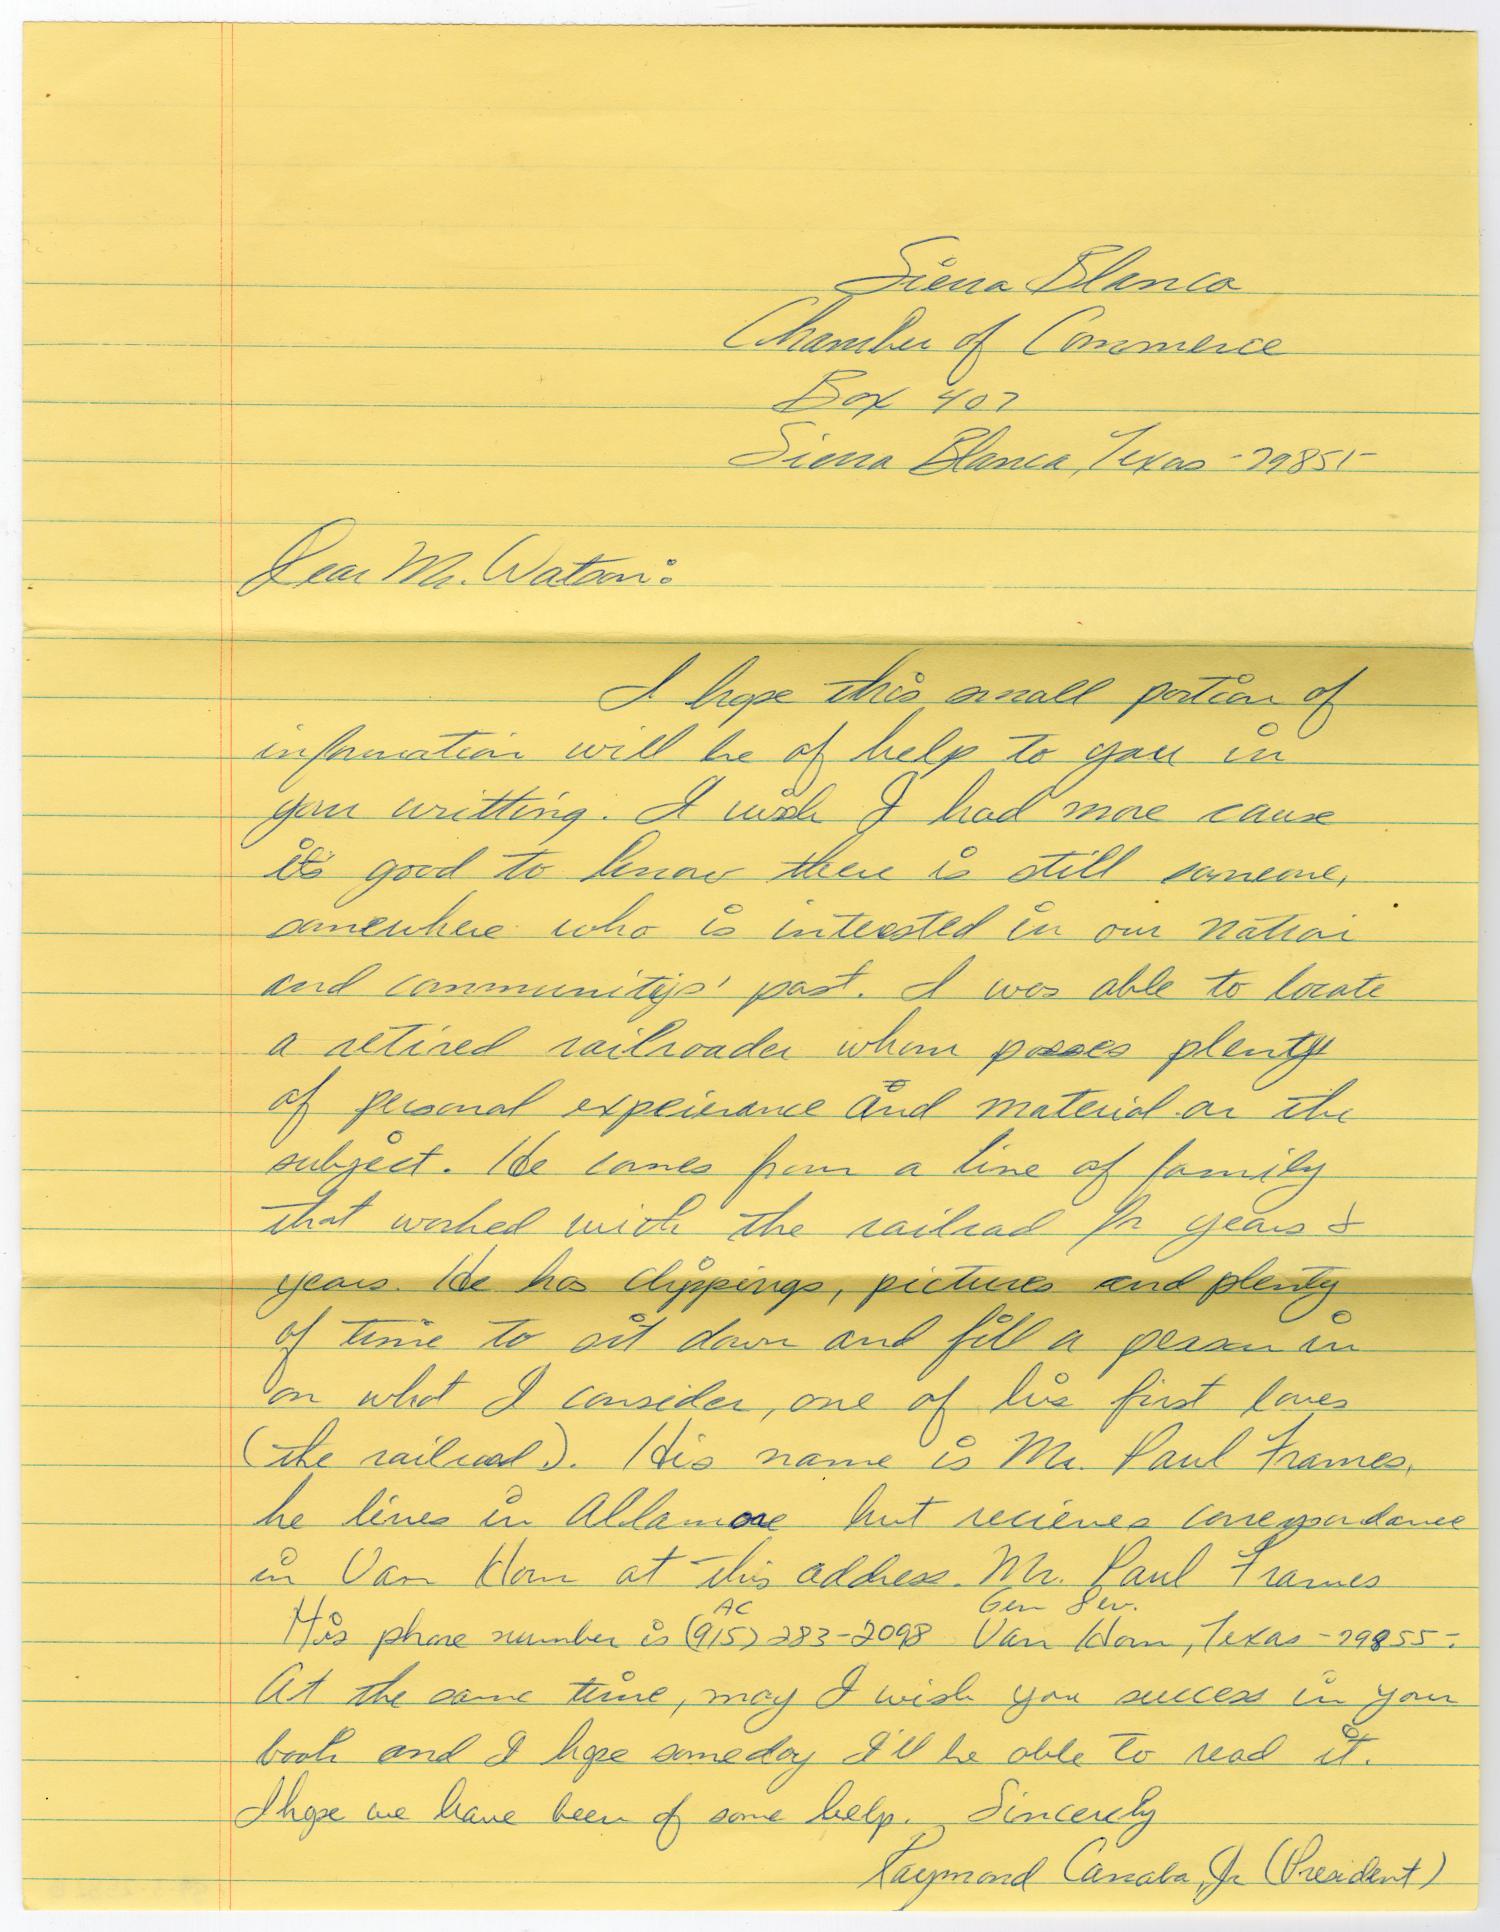 Sierra Blanca
Chamber of Commerce
Box 407
Sierra Blanca, Texas - 79851-
Dear Mr. Watson:
I hope this small portion of
information will be of help to you in
your writting. I wish I had more cause
it's good to know there is still someone,
somewhere who is interested in our nation
and communitys' past. I was able to locate
a retired railroader whom posses plenty
of personal expeierance and material on the
subject. He comes from a line of family
that worked with the railroad for years &
years. He has clippings, pictures and plenty
of time to sit down and fill a person in
on what I consider, one of his first loves
(the railroad). His name is Mr. Paul Frames,
he lives in Allamore but recieves correspondance
in Van Horn at this address. Mr. Paul Frames
AC Gen Del.
His phone number is (915) 283-2098 Van Horn, Texas - 79855-
At the same time, may I wish you success in your
book and I hope someday I'll be able to read it.
I hope we have been of some help. Sincerely
Raymond Jr (President)